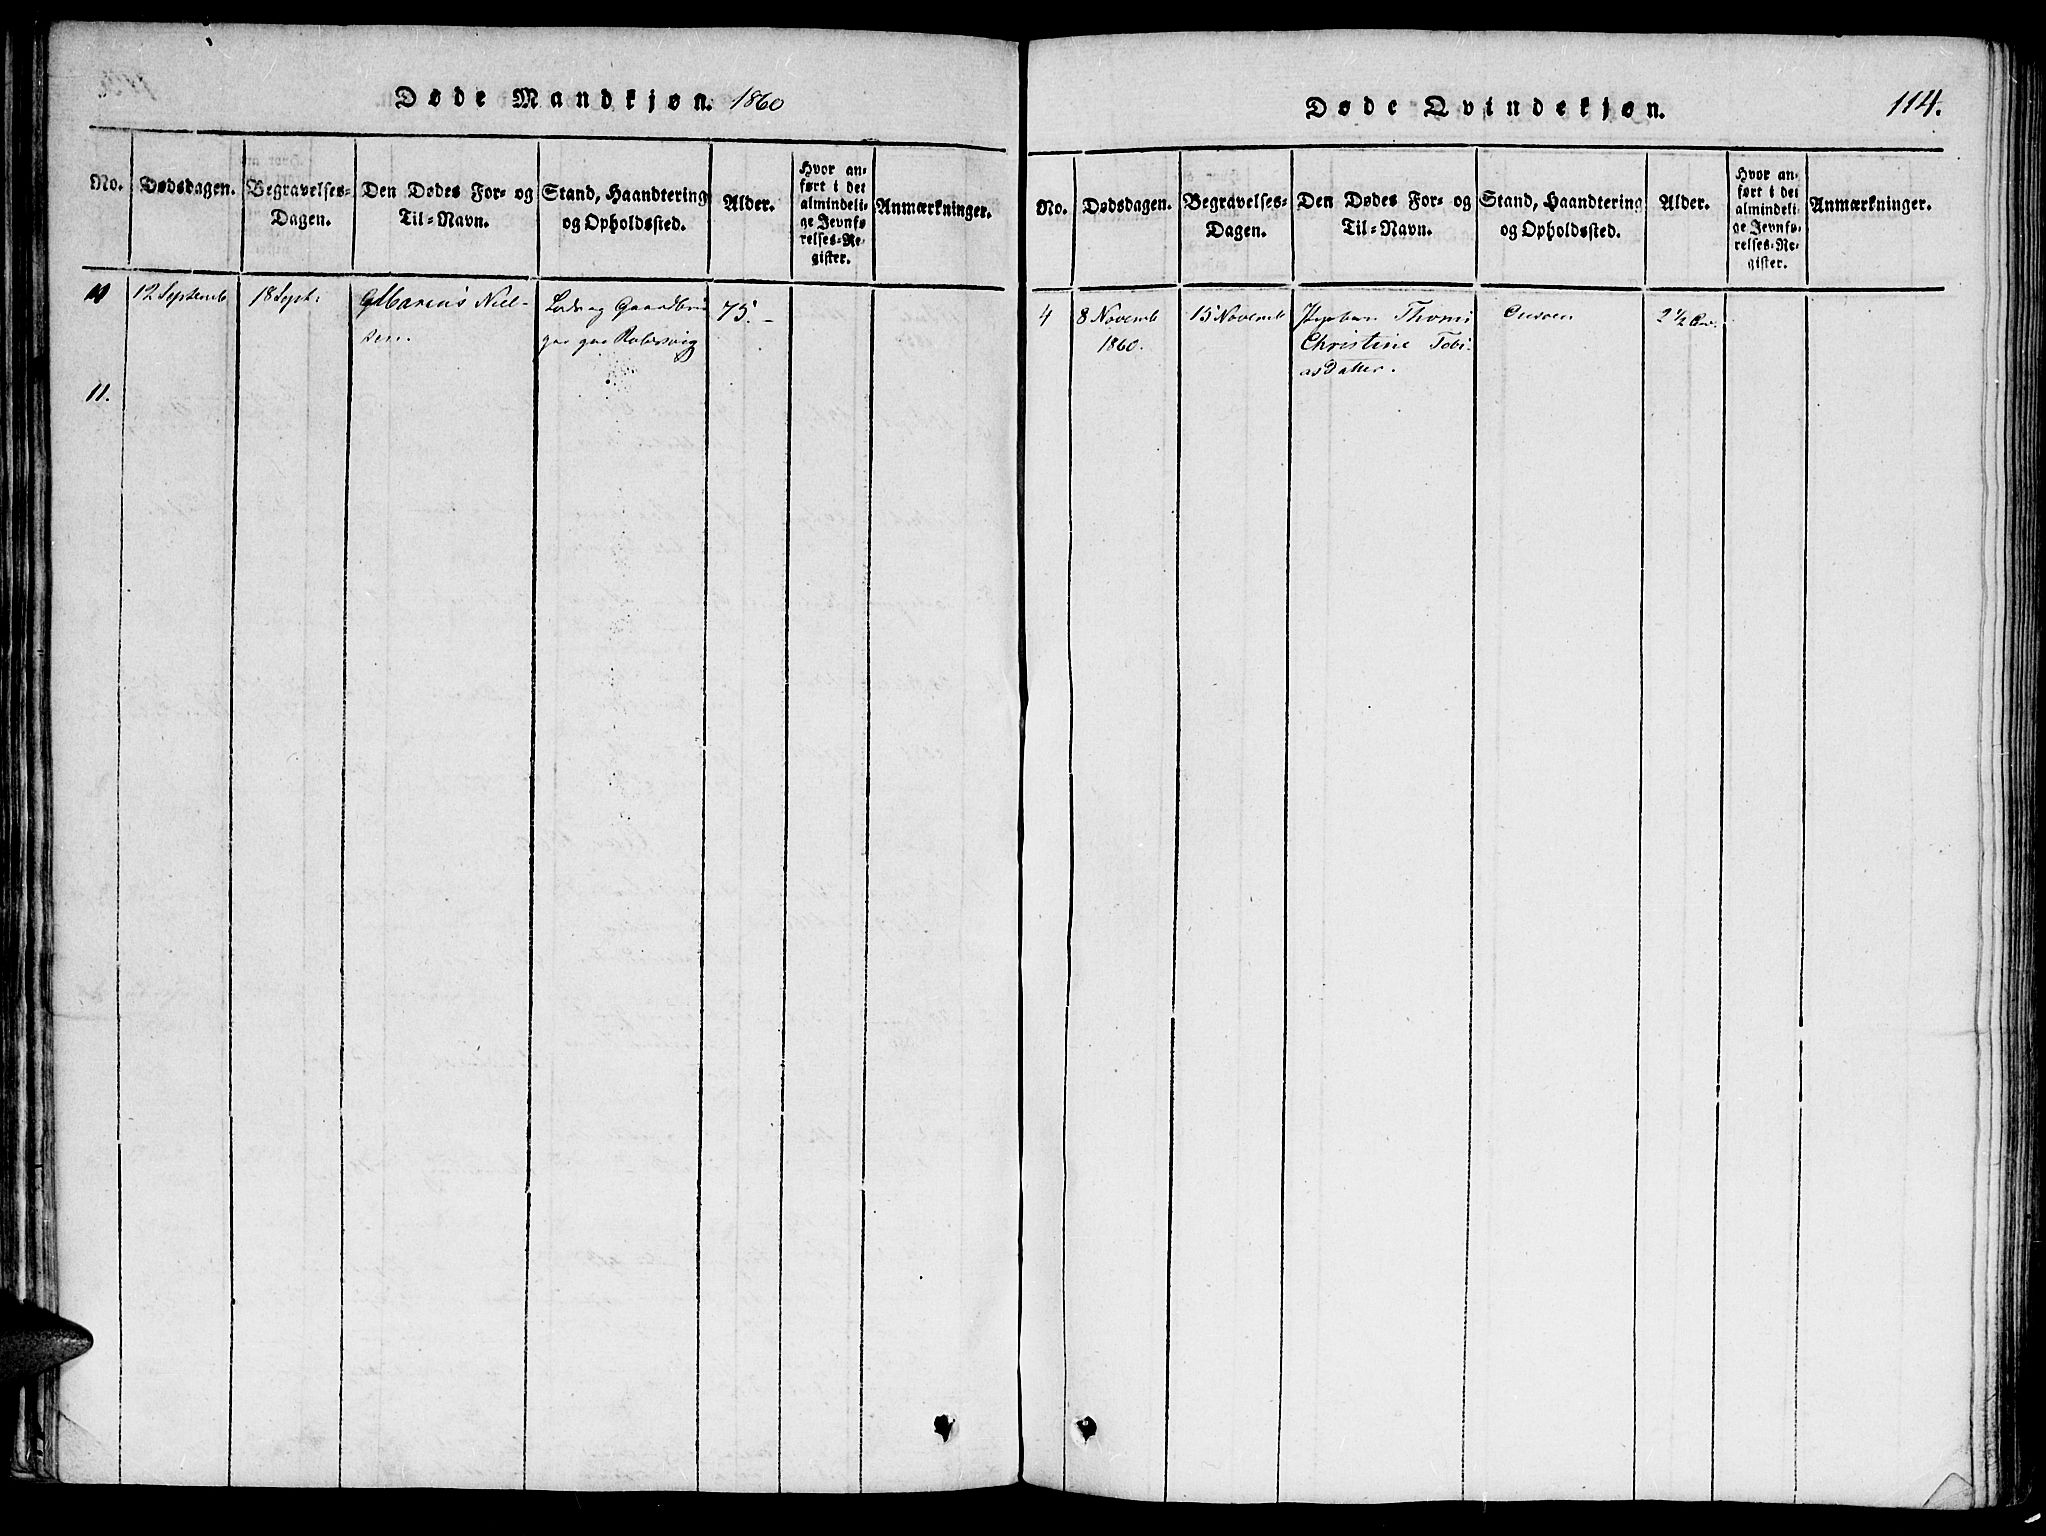 Døde Mandkjøn. 1860
No.
Dødsdagen.
Begravelses-
Dagen.
Den Dødes For- og
Til-Navn.
Stand, Haandtering
og Opholdssted.
Alder.
Hvor an-
ført i det
almindeli-
ge Jevnfø
relses-Re-
gister.
Anmærkninger.
10
12 Septemb
18 Sept:
Marcus Niel-
sen.
Lods og Gaardbru
75.-
11.
Døde Qvindekjøn.
114.
No.
Dødsdagen.
Begravelses-
Dagen.
Den Dødes For- og
Til-Navn.
Stand, Haandtering
og Opholdssted.
Alder.
Hvor an-
ført i det
almindeli-
ge Jevnfø-
relses-Re-
gister.
Anmærkninger.
4
8 Novemb
1860.
15 Novemb
Thomi
Christine Tobi-
asdatter.
2 1/2